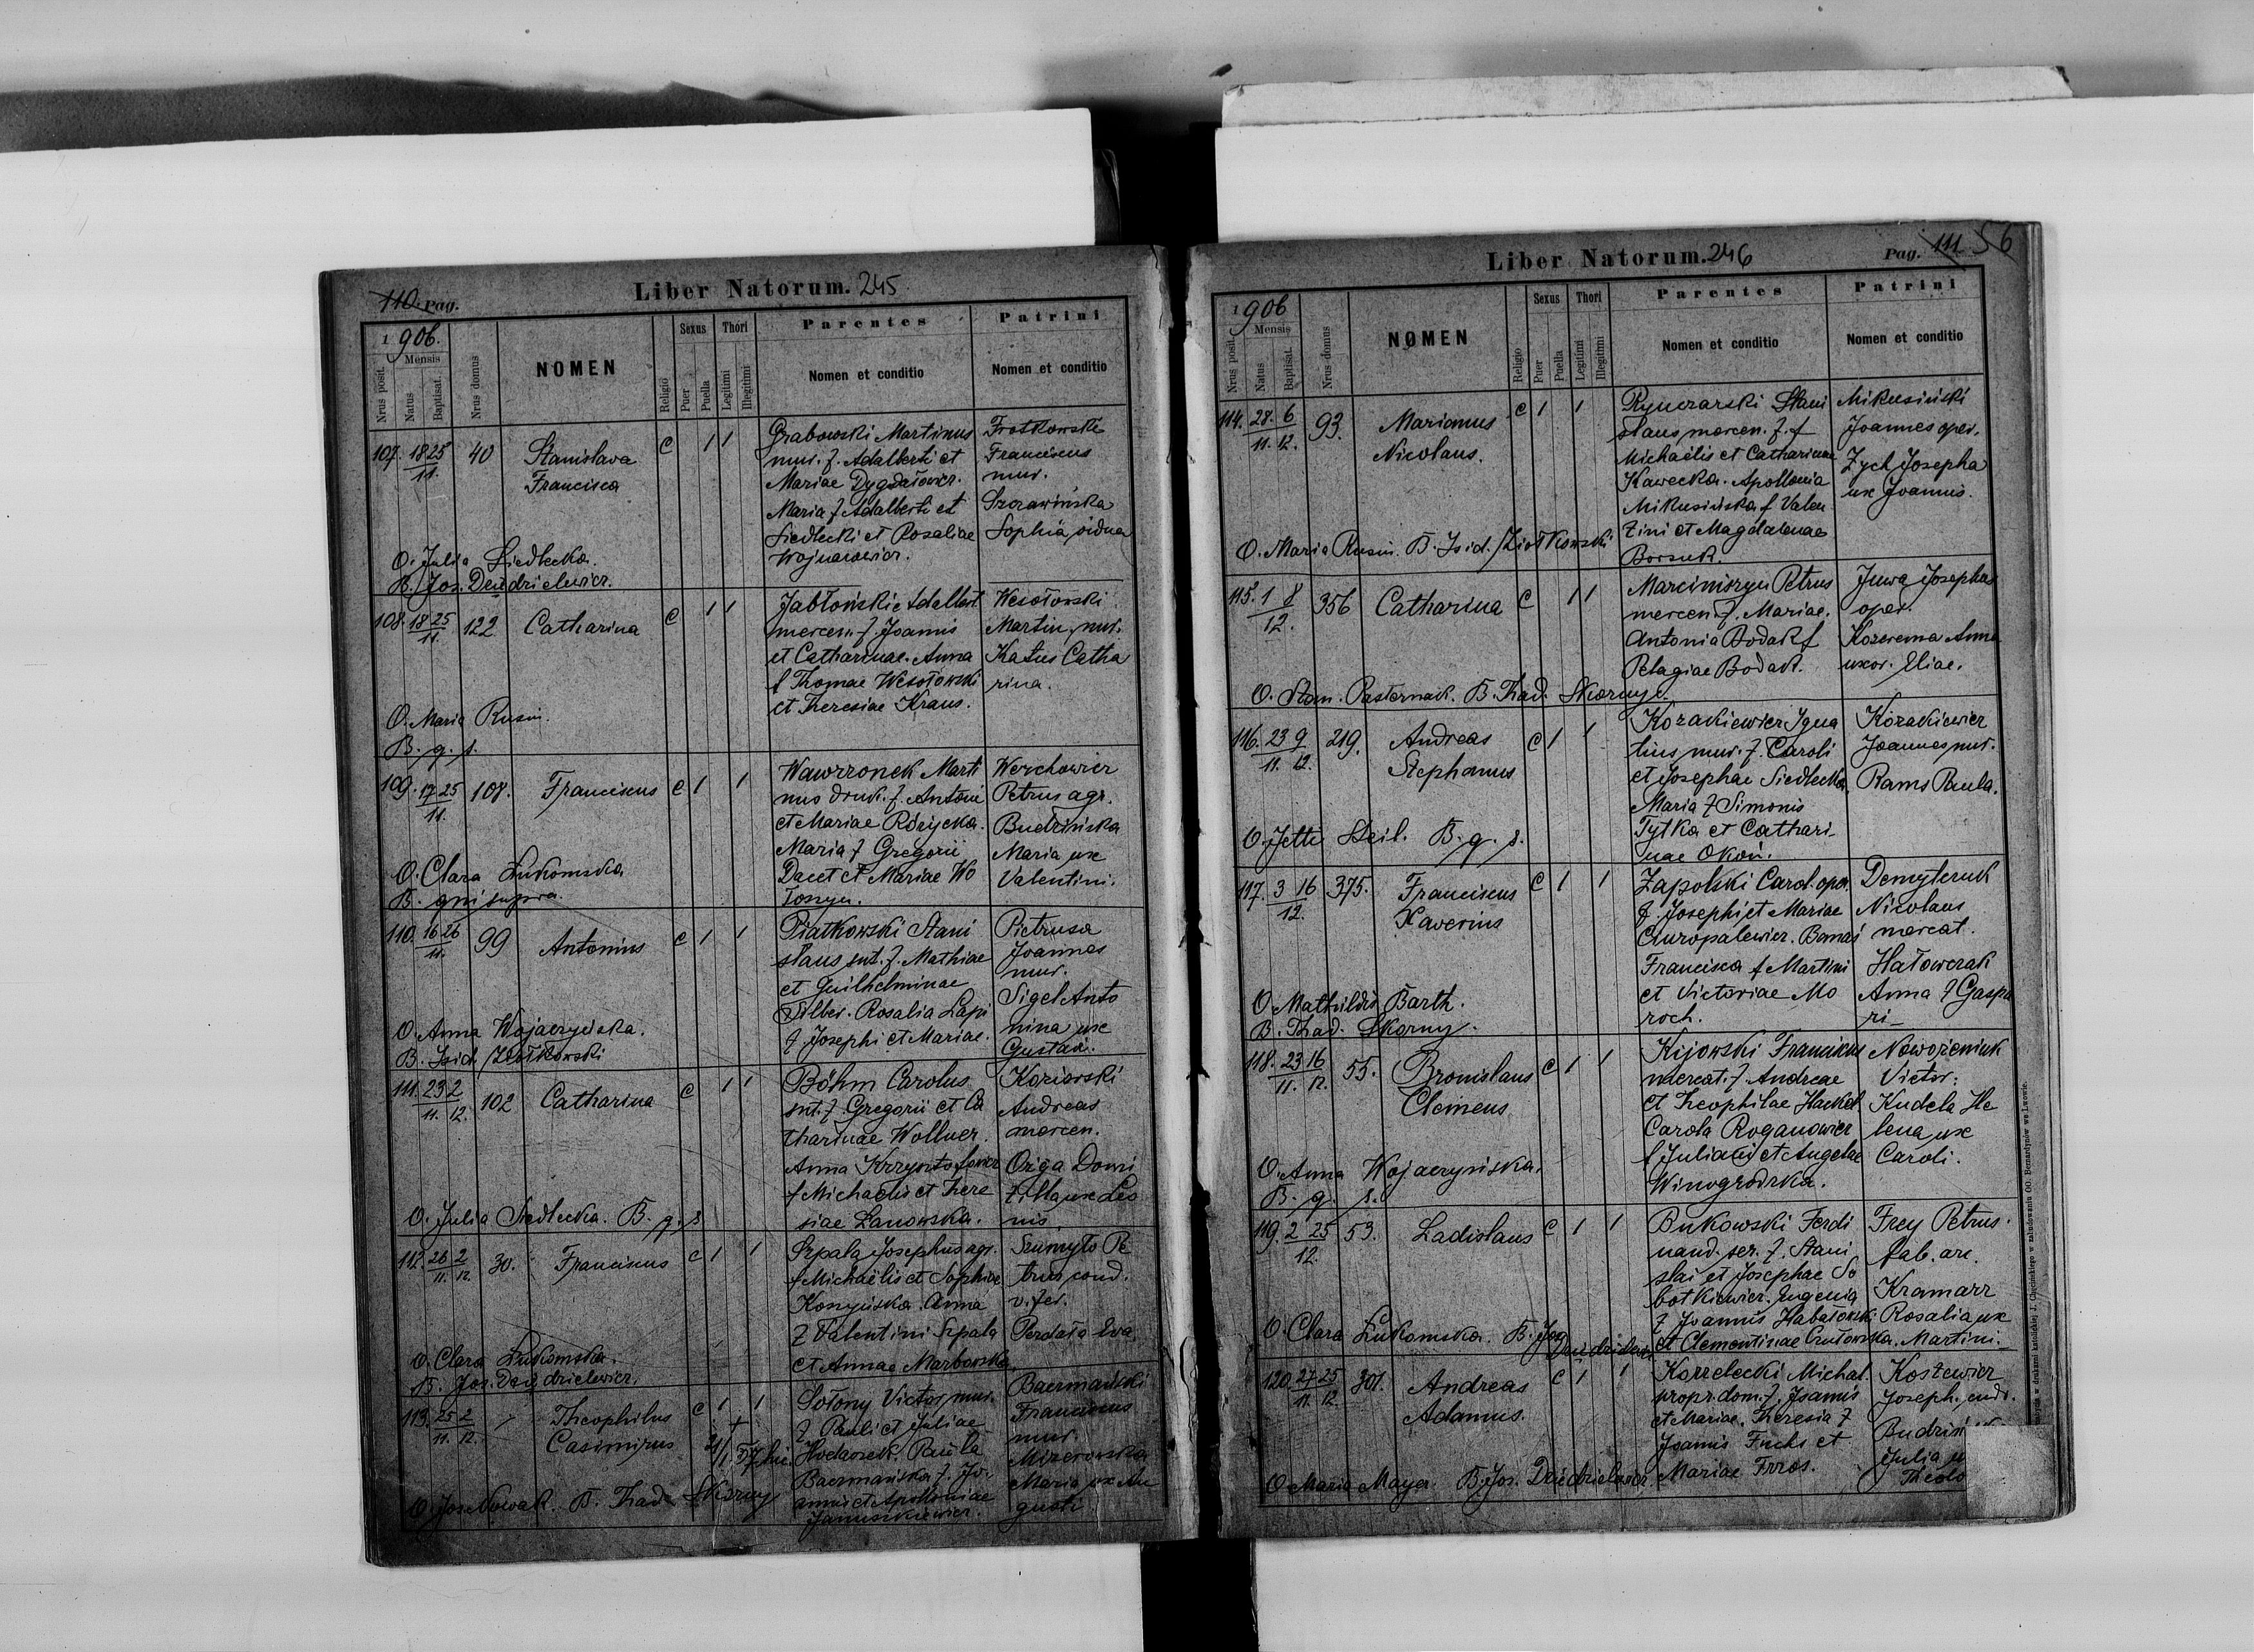 110. Pag.
Liber Natorum. 245
1906.
Mensis
Nrus posit.
Natus
Baptisat.
Nrus domus
NOMEN
Religio
Sexus
Puer
Puella
Thori
Legitimi
Illegitmi
Parentes
Nomen et conditio
Patrini
Nomen et conditio
107. 18 25
11.
40
Stanislava
Francisca
C 1 1
Grabowski Martinus
mur. f. Adalberti et
Mariae Dygdałowicz.
Maria f Adalberti et
Siedlecki et Rosaliae
Wojnarowicz.
Franciscus
mur.
Sophia vidua
O. Julia Siedlecka.
B. Jos. Dziędzielewicz.
108. 18 25
11.
122
Catharina
C 1 1
Jabłoński Adalbert
mercen. f. Joannis
et Catharinae. Anna
f Thomae Wesołowski
et Theresiae Kraus.
Wesołowski
Martin. mur.
Katus Catha
rina.
O. Maria Rusin.
B. q. s.
109. 17 25
11.
108.
Franciscus
C 1 1
Wawrzonek Marti
nus druk. f. Antoni
et Mariae Różycka.
Maria f Gregorii
Dacet et Mariae Wo
Werchowicz
Petrus agr.
Budzińska
Maria ux
Valentini.
O. Clara Łukomska
B. qui supra.
110. 16 26
11.
99
Antonius
C 1 1
Piatkowski Stani
slaus sut. f. Mathiae
et Guilhelminae
Silber. Rosalia Lapi
f Josephi et Mariae.
Pietrusa
Joannes
mur.
Sigel Anto
nina ux
Gustavi.
O. Anna Wojaczyńska.
B. Isid. Ziołkowski
111. 23 2
11. 12.
102
Catharina
C 1 1
Böhm Carolus
sut. f. Gregorii et Ca
tharinae Wollner.
Anna Krzysztofowicz
f Michaelis et There
siae Lanowska.
Koziorski
Andreas
mercen.
Domi
tilla ux Leo
nis.
O. Julia Siedlecka. B. q. s.
112. 26 2
11. 12.
30.
Franciscus
C 1 1
Szpala Josephus agr.
f Michaëlis et Sophiae
Anna
f Valentini Szpala
et Annae
Szumyło Pe
trus cond.
v. fer.
Perdała Eva
O. Clara Łukomska.
B. Jos. Dziędzielewicz.
113. 25 2
11. 12.
Theophilus
Casimirus
C 1 1
Sołony Victor mur.
f. Pauli et Juliae
Paula
f. Jo
annis et Apolloniae
Januszkiewicz.
Franciscus
mur.
Maria ux Au
gusti
O. Jos. Nowak. B. Thad. Skorny
Liber Natorum. 246
Pag. 111 56
1906
Mensis
Nrus posit.
Natus
Baptisat.
Nrus domus
NOMEN
Religio
Sexus
Puer
Puella
Thori
Legitimi
Illegitmi
Parentes
Nomen et conditio
Patrini
Nomen et conditio
114. 28. 6
11. 12.
93.
Marianus
Nicolaus.
C 1 1
Rymarski Stani
slaus mercen. f. f
Michaëlis et Catharinae
Kawecka. Apollonia
Mikusińska f Valen
tini et Magdalenae
Borsuk.
Mikusiński
Joannes oper.
Zych Josepha
ux Joannis.
O. Maria Rusin. B. Isid. Ziołkowski
115. 1 8
12.
356
Catharina
C 1 1
Marciniszyn Petrus
mercen. f. Mariae.
Antonia Bodak f
Pelagiae Bodak.
Juwa Josephus
oper.
Anna
uxor. Eliae.
O. Stan. Pasternak. B. Thad. Skorny.
116. 23 9
11. 12.
219.
Andreas
Stephanus
C 1 1
Kozakiewicz Igna
tius mur. f. Caroli
et Josephae Siedlecka
Maria f Simonis
Tytka et Cathari
nae Okoń.
Kozakiewicz
Joannes mur.
Rams Paula.
O. Jette Heil. B. q. s.
117. 3 16
12.
375.
Franciscus
Xaverius
C 1 1
Zapolski Carol. oper.
f. Josephi et Mariae
Curopalewicz. Banaś
Francisca f Martini
et Victoriae Mo
roch.
Demyteruk
Nicolaus
mercat.
Hałowczak
Anna f Gaspa
ri
O. Mathildis Barth.
B. Thad. Skorny.
118. 23 16
11. 12.
55.
Bronislaus
Clemens
C 1 1
Kijowski Franciscus
mercat. f. Andreae
et Theophilae Hackel
Carola Roganowicz
f Juliani et Angelae
Winogrodzka.
Nowożeniuk
Victor.
Kudela He
lena ux
Caroli.
O. Anna Wojaczyńska.
B. q. s.
119. 2 25
12.
53.
Ladislaus
C 1 1
Bukowski Ferdi
nand. ser. f. Stani
slai et Josephae So
botkiewicz. Eugenia
f Joannis
et Clementinae
Frey Petrus.
fab. are.
Kramarz
Rosalia ux
Martini.
O. Clara Łukomska. B. Jos.
Dziędzielewicz
120. 27 25
11. 12.
301.
Andreas
Adamus.
C 1 1
Korzelecki Michal.
propr. dom. f. Joannis
et Mariae. Theresia f
Joannis Fuchs et
Mariae
Koszewicz
Joseph.
Julia
O. Maria Maya. B. Jos. Dziędzielewicz.